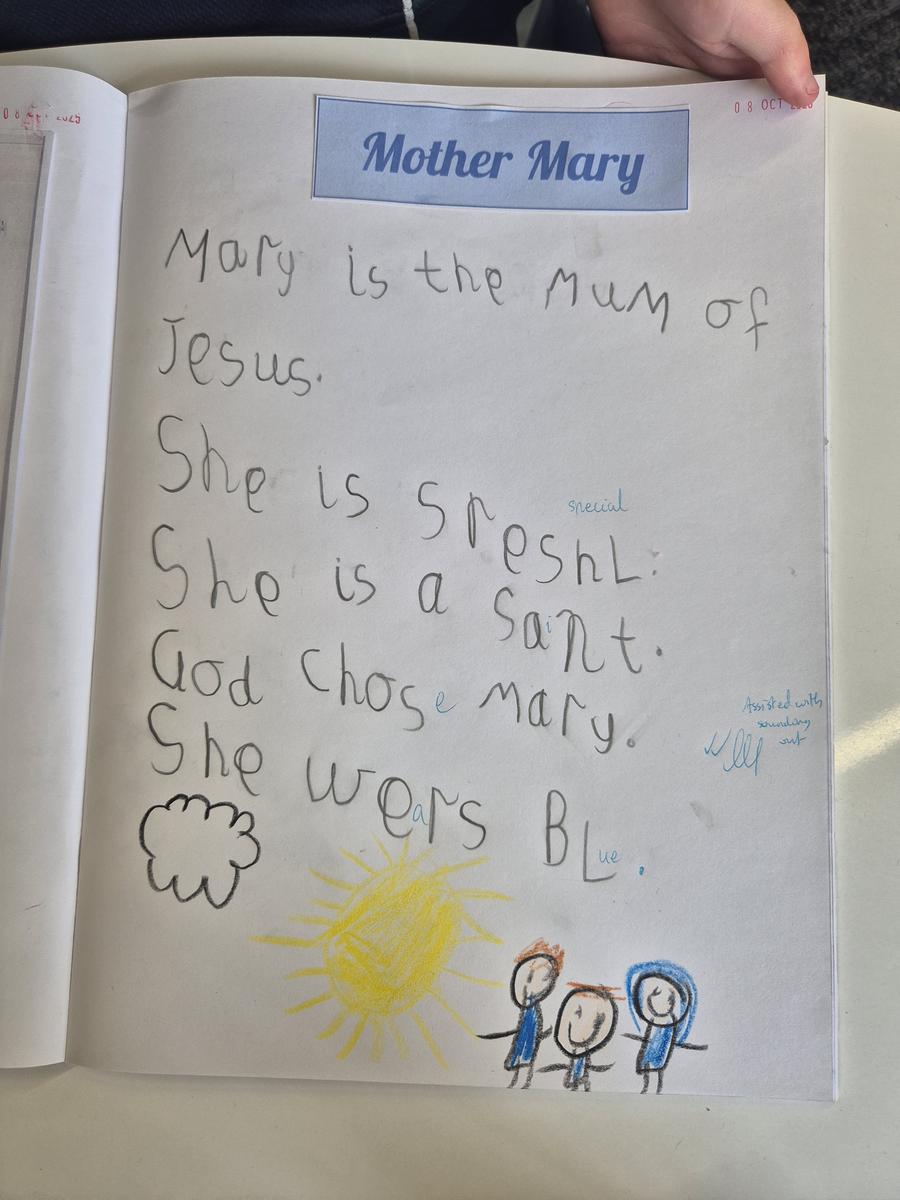 08 OCT 2025
Mother Mary
Mary is the mum of
Jesus.
She is spreshL.
special
She is a Saint.
God chose Mary.
Assisted with
sounding
out
She wears BLue.